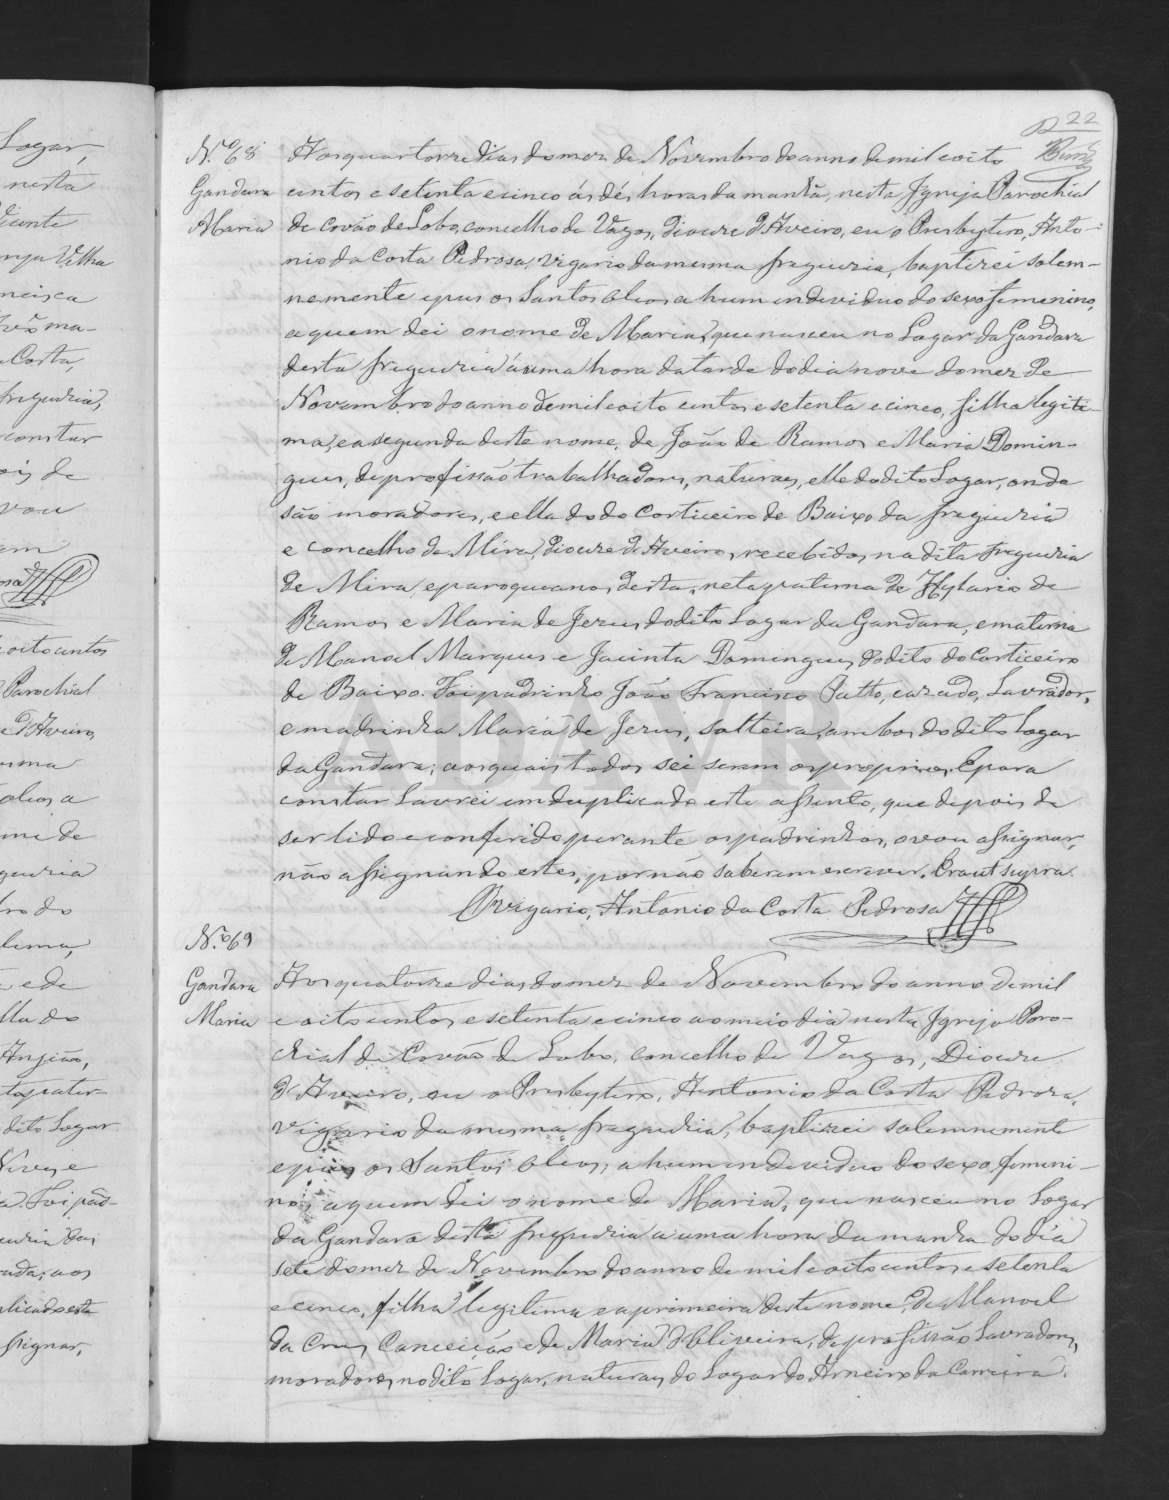 22
N.º 68
Gandara
Maria
Aos quartorze dias do mez de Novembro do anno de mil e oito
centos e setenta e cinco ás dés horas da manhã, nesta Igreja Parochial
de Covão de Lobo, concelho de Vagos, Diocese d'Aveiro, eu o Presbytero, Anto-
nio da Costa Pedrosa, Vigario da mesma freguezia, baptizei solem-
nemente e puz os Santos oleos a hum individuo do sexo femenino,
a quem dei o nome de Maria, que nasceu no Logar da Gandara
desta freguezia á uma hora da tarde do dia nove do mez de
Novembro do anno de mil e oito centos e setenta e cinco, filha legiti-
ma, e a segunda deste nome, de João de Ramos e Maria Domin-
gues, de profissão trabalhadores, naturaes, elle do dito Logar, onde
são moradores, e ella do do Corticeiro de Baixo da freguezia
e concelho de Mira, diocese de Aveiro, recebidos na dita freguezia
de Mira, e paroquianos desta, neta paterna de Hylario de
Ramos e Maria de Jezus, do dito Logar da Gandara, e materna
de Manoel Marques e Jacinta Domingues, do dito do Corticeiro
de Baixo. Foi padrinho João Francisco Patto, cazado, Lavrador,
e madrinha Maria de Jezus, solteira, ambos do dito Logar
da Gandara; aos quais todos sei serem os proprios. E para
constar lavrei em duplicado este assento, que depois de
ser lido e conferido perante os padrinhos, o vou assignar,
não assignando estes, por não saberem escrever. Era ut supra.
O Vigario, Antonio da Costa Pedrosa
N.º 69
Gandara
Maria
Aos quatorze dias do mez de Novembro do anno de mil
e oito centos e setenta e cinco ao meio dia nesta Igreja Paro-
chial de Covão de Lobo, concelho de Vagos, Diocese
d'Aveiro, eu o Presbytero, Antonio da Costa Pedrosa,
Vigario da mesma freguezia, baptizei solemnemente
e puz os Santos Oleos, a hum individuo do sexo femeni-
no, a quem dei o nome de Maria, que nasceu no Logar
da Gandara desta freguezia a uma hora da manhã do dia
sete do mez de Novembro do anno de mil e oito centos e setenta
e cinco, filha legitima e a primeira deste nome, de Manoel
da Cruz Conceição e de Maria d'Oliveira, de profissão Lavradores,
moradores no dito Logar, naturaes do Logar do Arneiro da Carreira.
ADAVR